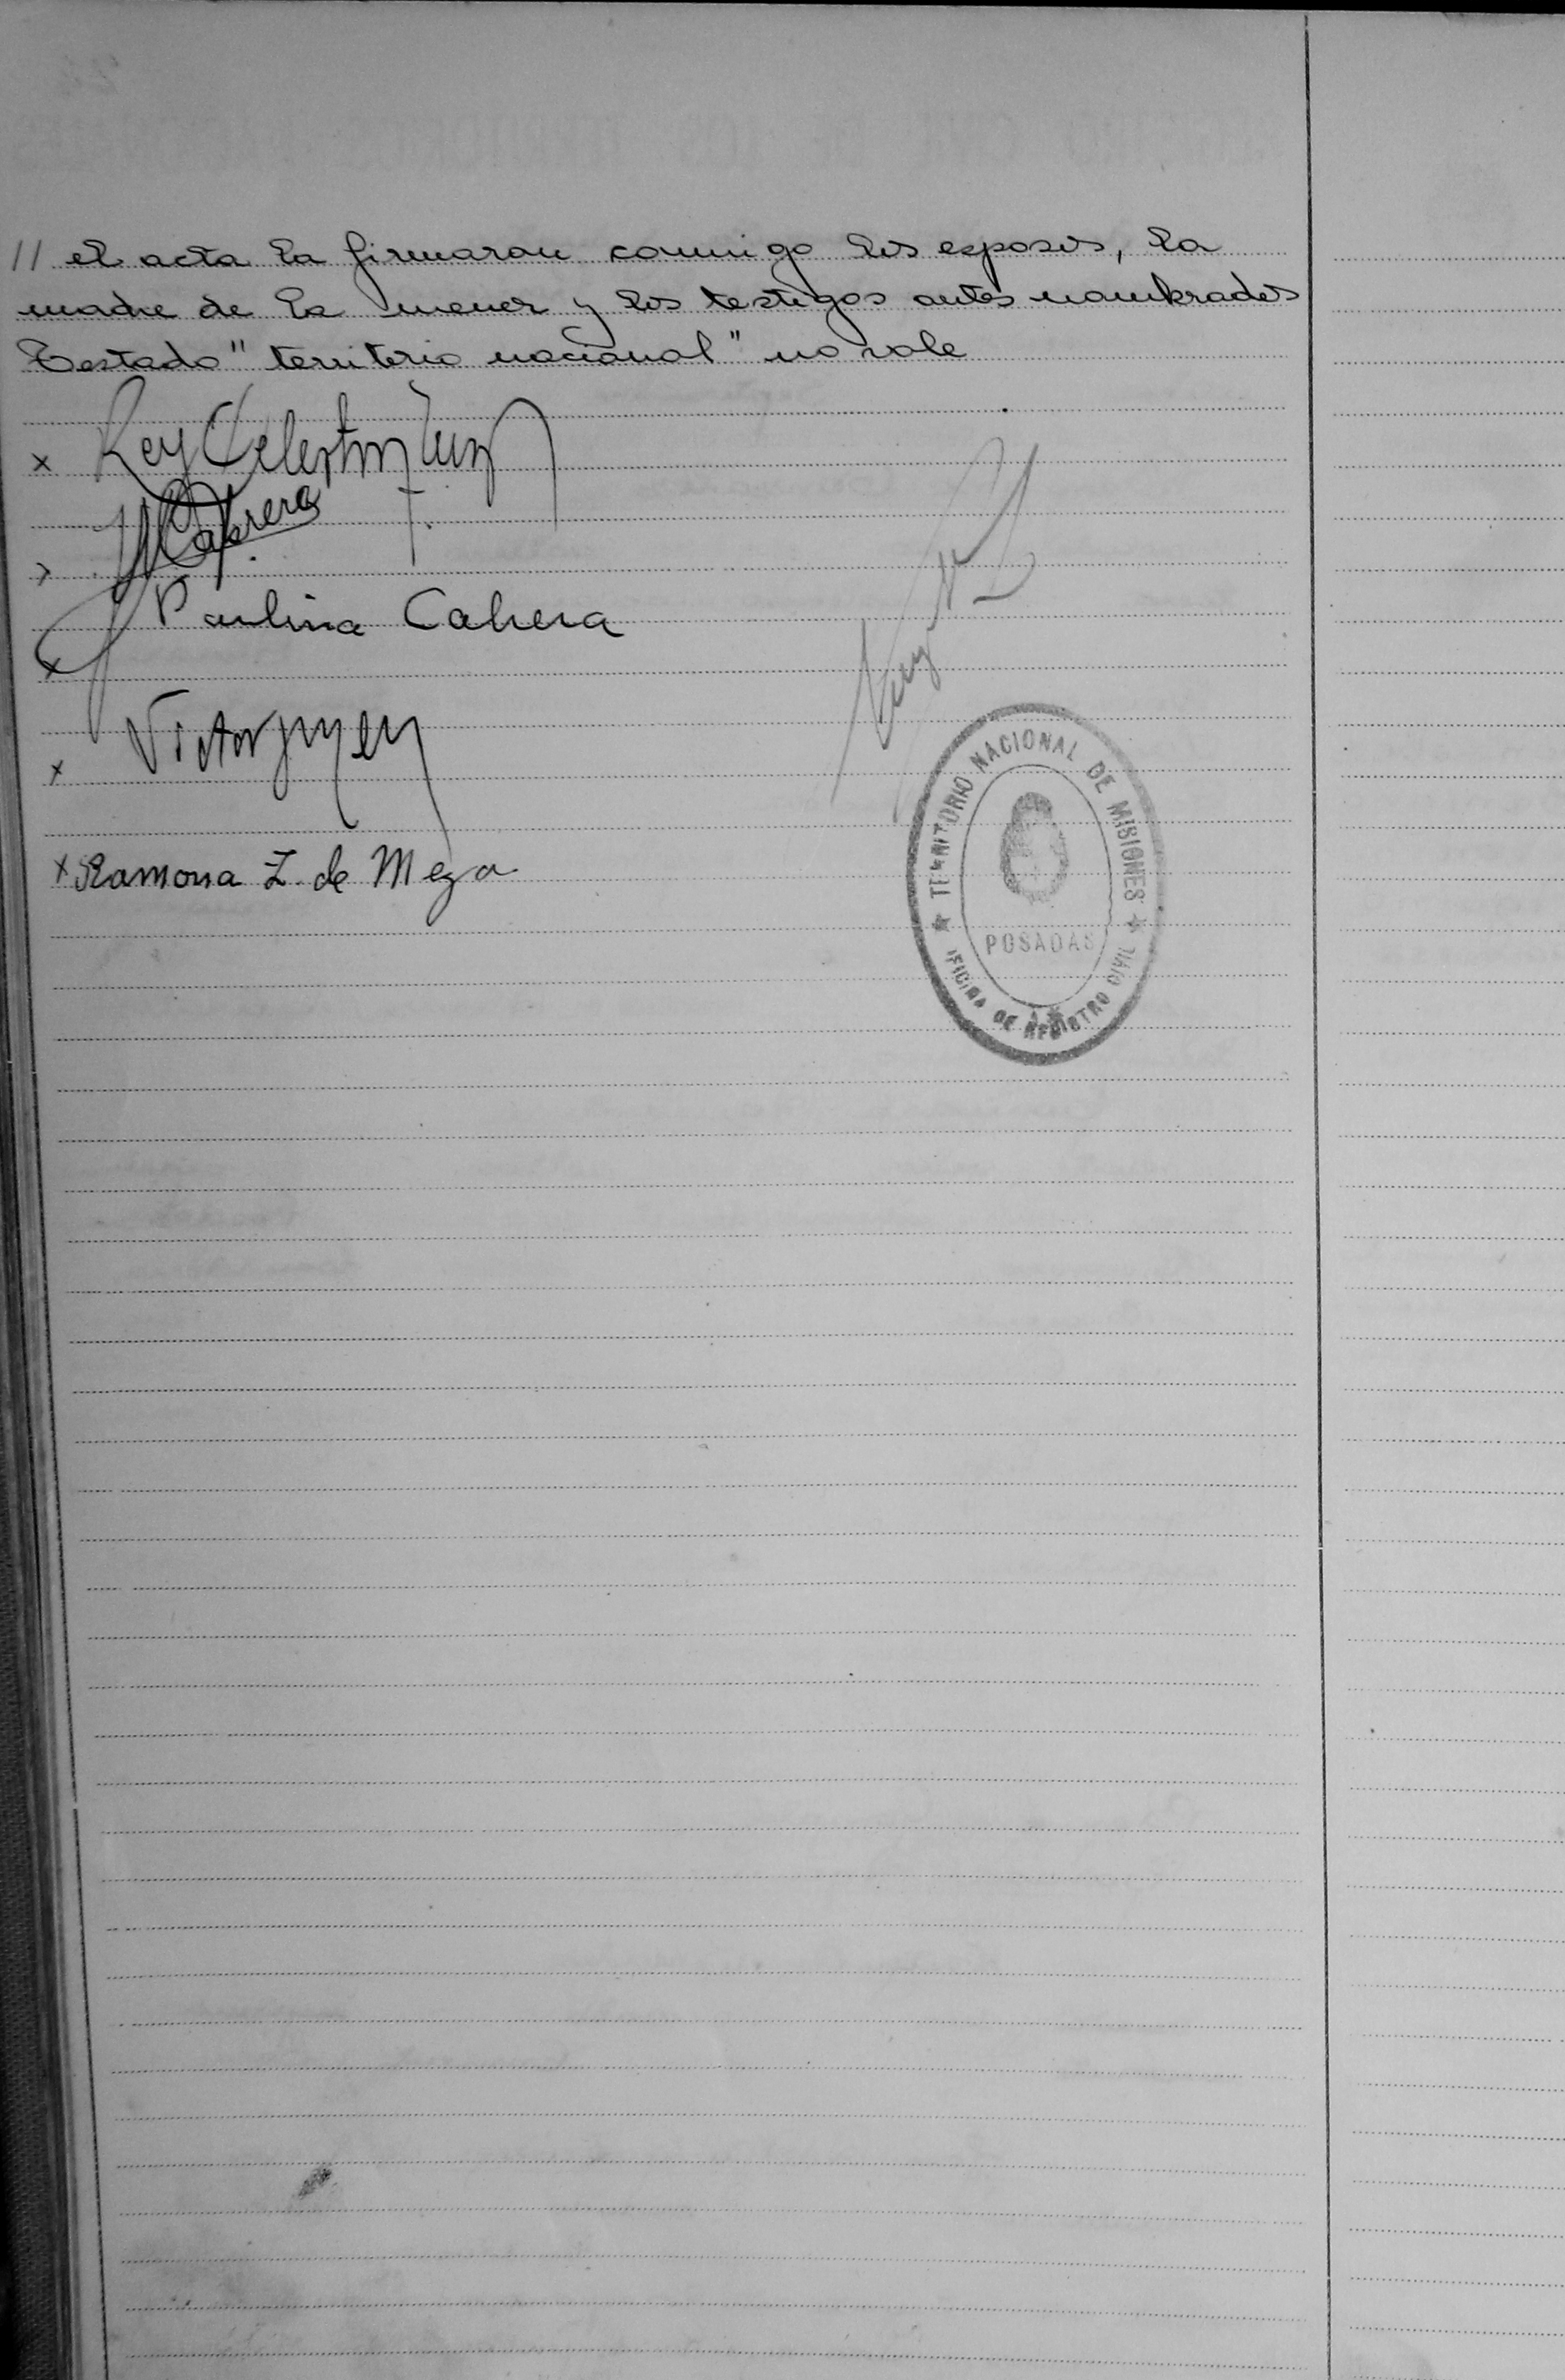 // el acta la firmaron conmigo los esposos, la
madre de la menor y los testigos antes nombrados
Testado "territorio nacional" no vale
x Rey Celestin
Cabrera
Paulina Cabrera
x Victor
x Ramona Z. de Meza
TERRITORIO NACIONAL DE MISIONES
POSADAS
OFICINA DE REGISTRO CIVIL